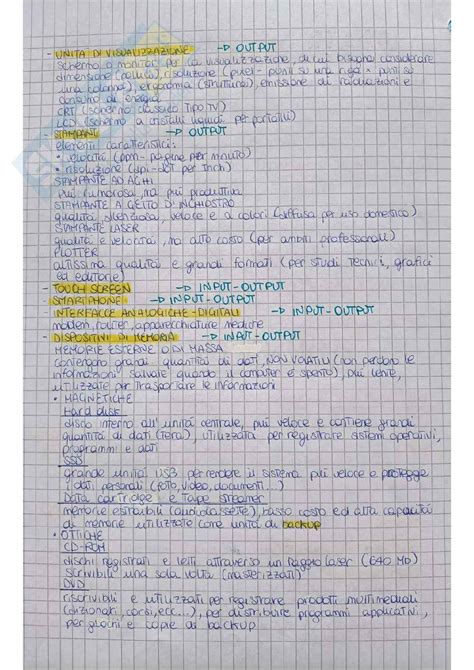 - UNITÀ DI VISUALIZZAZIONE → OUTPUT
schermo o monitor per la visualizzazione, di cui bisogna considerare
dimensione (pollici), risoluzione (pixel - punti su una riga × punti su
una colonna), ergonomia (struttura), emissione di radiazioni e
consumo di energia
CRT (schermo classico tipo TV)
LCD (schermo a cristalli liquidi per portatili)
- STAMPANTI → OUTPUT
elementi caratteristici:
• velocità (ppm - pagine per minuto)
• risoluzione (dpi - dot per inch)
STAMPANTE AD AGHI
più rumorosa, ma più produttiva
STAMPANTE A GETTO DI INCHIOSTRO
qualità, silenziosa, veloce e a colori (diffusa per uso domestico)
STAMPANTE LASER
qualità e velocità, ma alto costo (per ambiti professionali)
PLOTTER
altissima qualità e grandi formati (per studi tecnici, grafici
ed editorie)
- TOUCH SCREEN → INPUT - OUTPUT
- SMARTPHONE → INPUT - OUTPUT
- INTERFACCE ANALOGICHE - DIGITALI → INPUT - OUTPUT
modem, router, apparecchiature mediche
- DISPOSITIVI DI MEMORIA → INPUT - OUTPUT
MEMORIE ESTERNE O DI MASSA
contengono grandi quantità di dati, NON VOLATILI (non perdono le
informazioni salvate quando il computer è spento), più lente,
utilizzate per trasportare le informazioni
• MAGNETICHE
Hard disk
disco interno all'unità centrale, più veloce e contiene grandi
quantità di dati (Tera), utilizzata per registrare sistemi operativi,
programmi e dati
SSD
grande unità USB per rendere il sistema più veloce e protegge
i dati personali (foto, video, documenti...)
Data cartridge e Tape streamer
memorie estraibili (audiocassette), basso costo ed alta capacità
di memorie utilizzate come unità di backup
• OTTICHE
CD-ROM
dischi registrati e letti attraverso un raggio laser (640 Mb)
scrivibili una sola volta (masterizzati)
DVD
riscrivibili e utilizzati per registrare prodotti multimediali
(dizionari, corsi, ecc...), per distribuire programmi applicativi,
per giochi e copie di backup